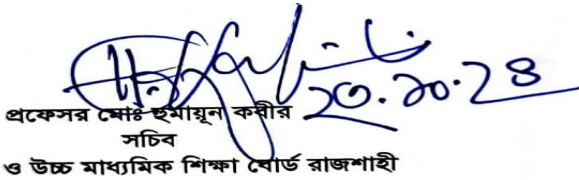 ২০.১০.২৪
প্রফেসর মোঃ হুমায়ূন কবীর
সচিব
ও উচ্চ মাধ্যমিক শিক্ষা বোর্ড রাজশাহী